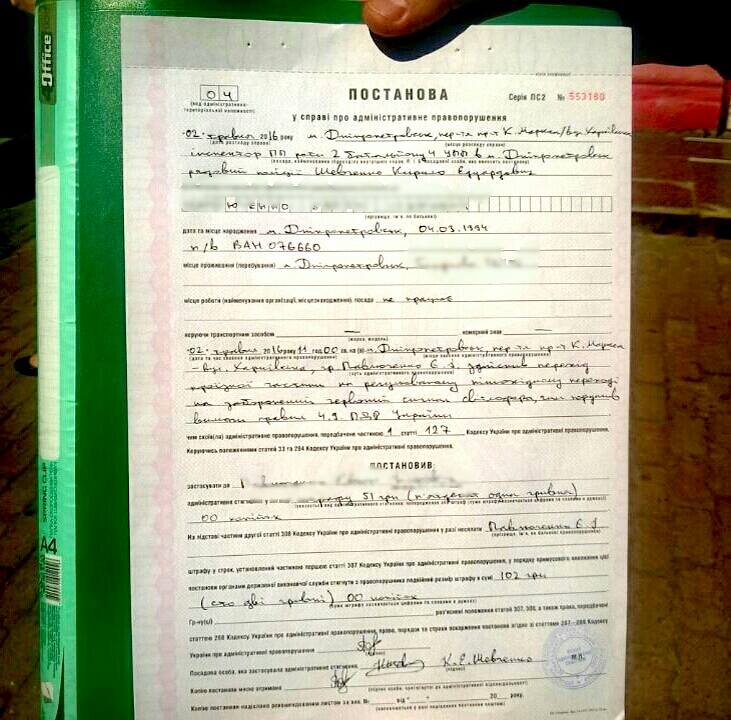 Office
ПОСТАНОВА
Серія ПС2 № 553160
04
(код адміністративно-
територіальної належності)
у справі про адміністративне правопорушення
02 травня 2016 року м. Дніпропетровськ, пр-т К. Маркса/вул. Харківська
(дата розгляду справи) (місце розгляду справи)
інспектор ПП роти 2 батальйону 4 УПП в м. Дніпропетровськ
рядовий поліції Шевченко Кирило Едуардович
(прізвище, ім'я, по батькові)
дата та місце народження м. Дніпропетровськ, 04.03.1994
п/в ВАН 076660
місце проживання (перебування) м. Дніпропетровськ,
місце роботи (найменування організації, місцезнаходження), посада не працює
керуючи транспортним засобом — номерний знак —
(марка, модель)
02 травня 2016 року 11 год 00 хв. на (в) м. Дніпропетровськ, пр-т К. Маркса
(дата та час скоєння адміністративного правопорушення) (місце скоєння адміністративного правопорушення)
– вул. Харківська, гр. Павлюченко Є. здійснив перехід
(суть адміністративного правопорушення)
проїзної частини на регульованому пішохідному переході
на заборонений червоний сигнал світлофора, чим порушив
вимоги правил ПДР України
чим скоїв(ла) адміністративне правопорушення, передбачене частиною 1 статті 127 Кодексу України про адміністративні правопорушення.
Керуючись положеннями статей 33 та 294 Кодексу України про адміністративні правопорушення,
ПОСТАНОВИВ:
застосувати до
адміністративне стягнення у штрафу 51 грн (п'ятдесят одна гривня)
00 копійок
На підставі частини другої статті 308 Кодексу України про адміністративні правопорушення у разі несплати Павлюченко Є.
(прізвище, ім'я, по батькові правопорушника)
штрафу у строк, установлений частиною першою статті 307 Кодексу України про адміністративні правопорушення, у порядку примусового виконання цієї
постанови органами державної виконавчої служби стягнути з правопорушника подвійний розмір штрафу в сумі 102 грн
(сто дві гривні) 00 копійок
(сума штрафу зазначається цифрами та словами в дужках)
Гр-ну(ці) роз'яснені положення статей 307, 308, а також права, передбачені
статтею 268 Кодексу України про адміністративні правопорушення, право, порядок та строки оскарження постанови згідно зі статтями 287–289 Кодексу
України про адміністративні правопорушення
Посадова особа, яка застосувала адміністративне стягнення К.Е. Шевченко
(підпис)
М.П.
Копію постанови мною отримано
(підпис особи, притягнутої до адміністративної відповідальності)
Копію постанови надіслано рекомендованим листом за вих. № від " " 20 року.
SPRING CLIP
A4